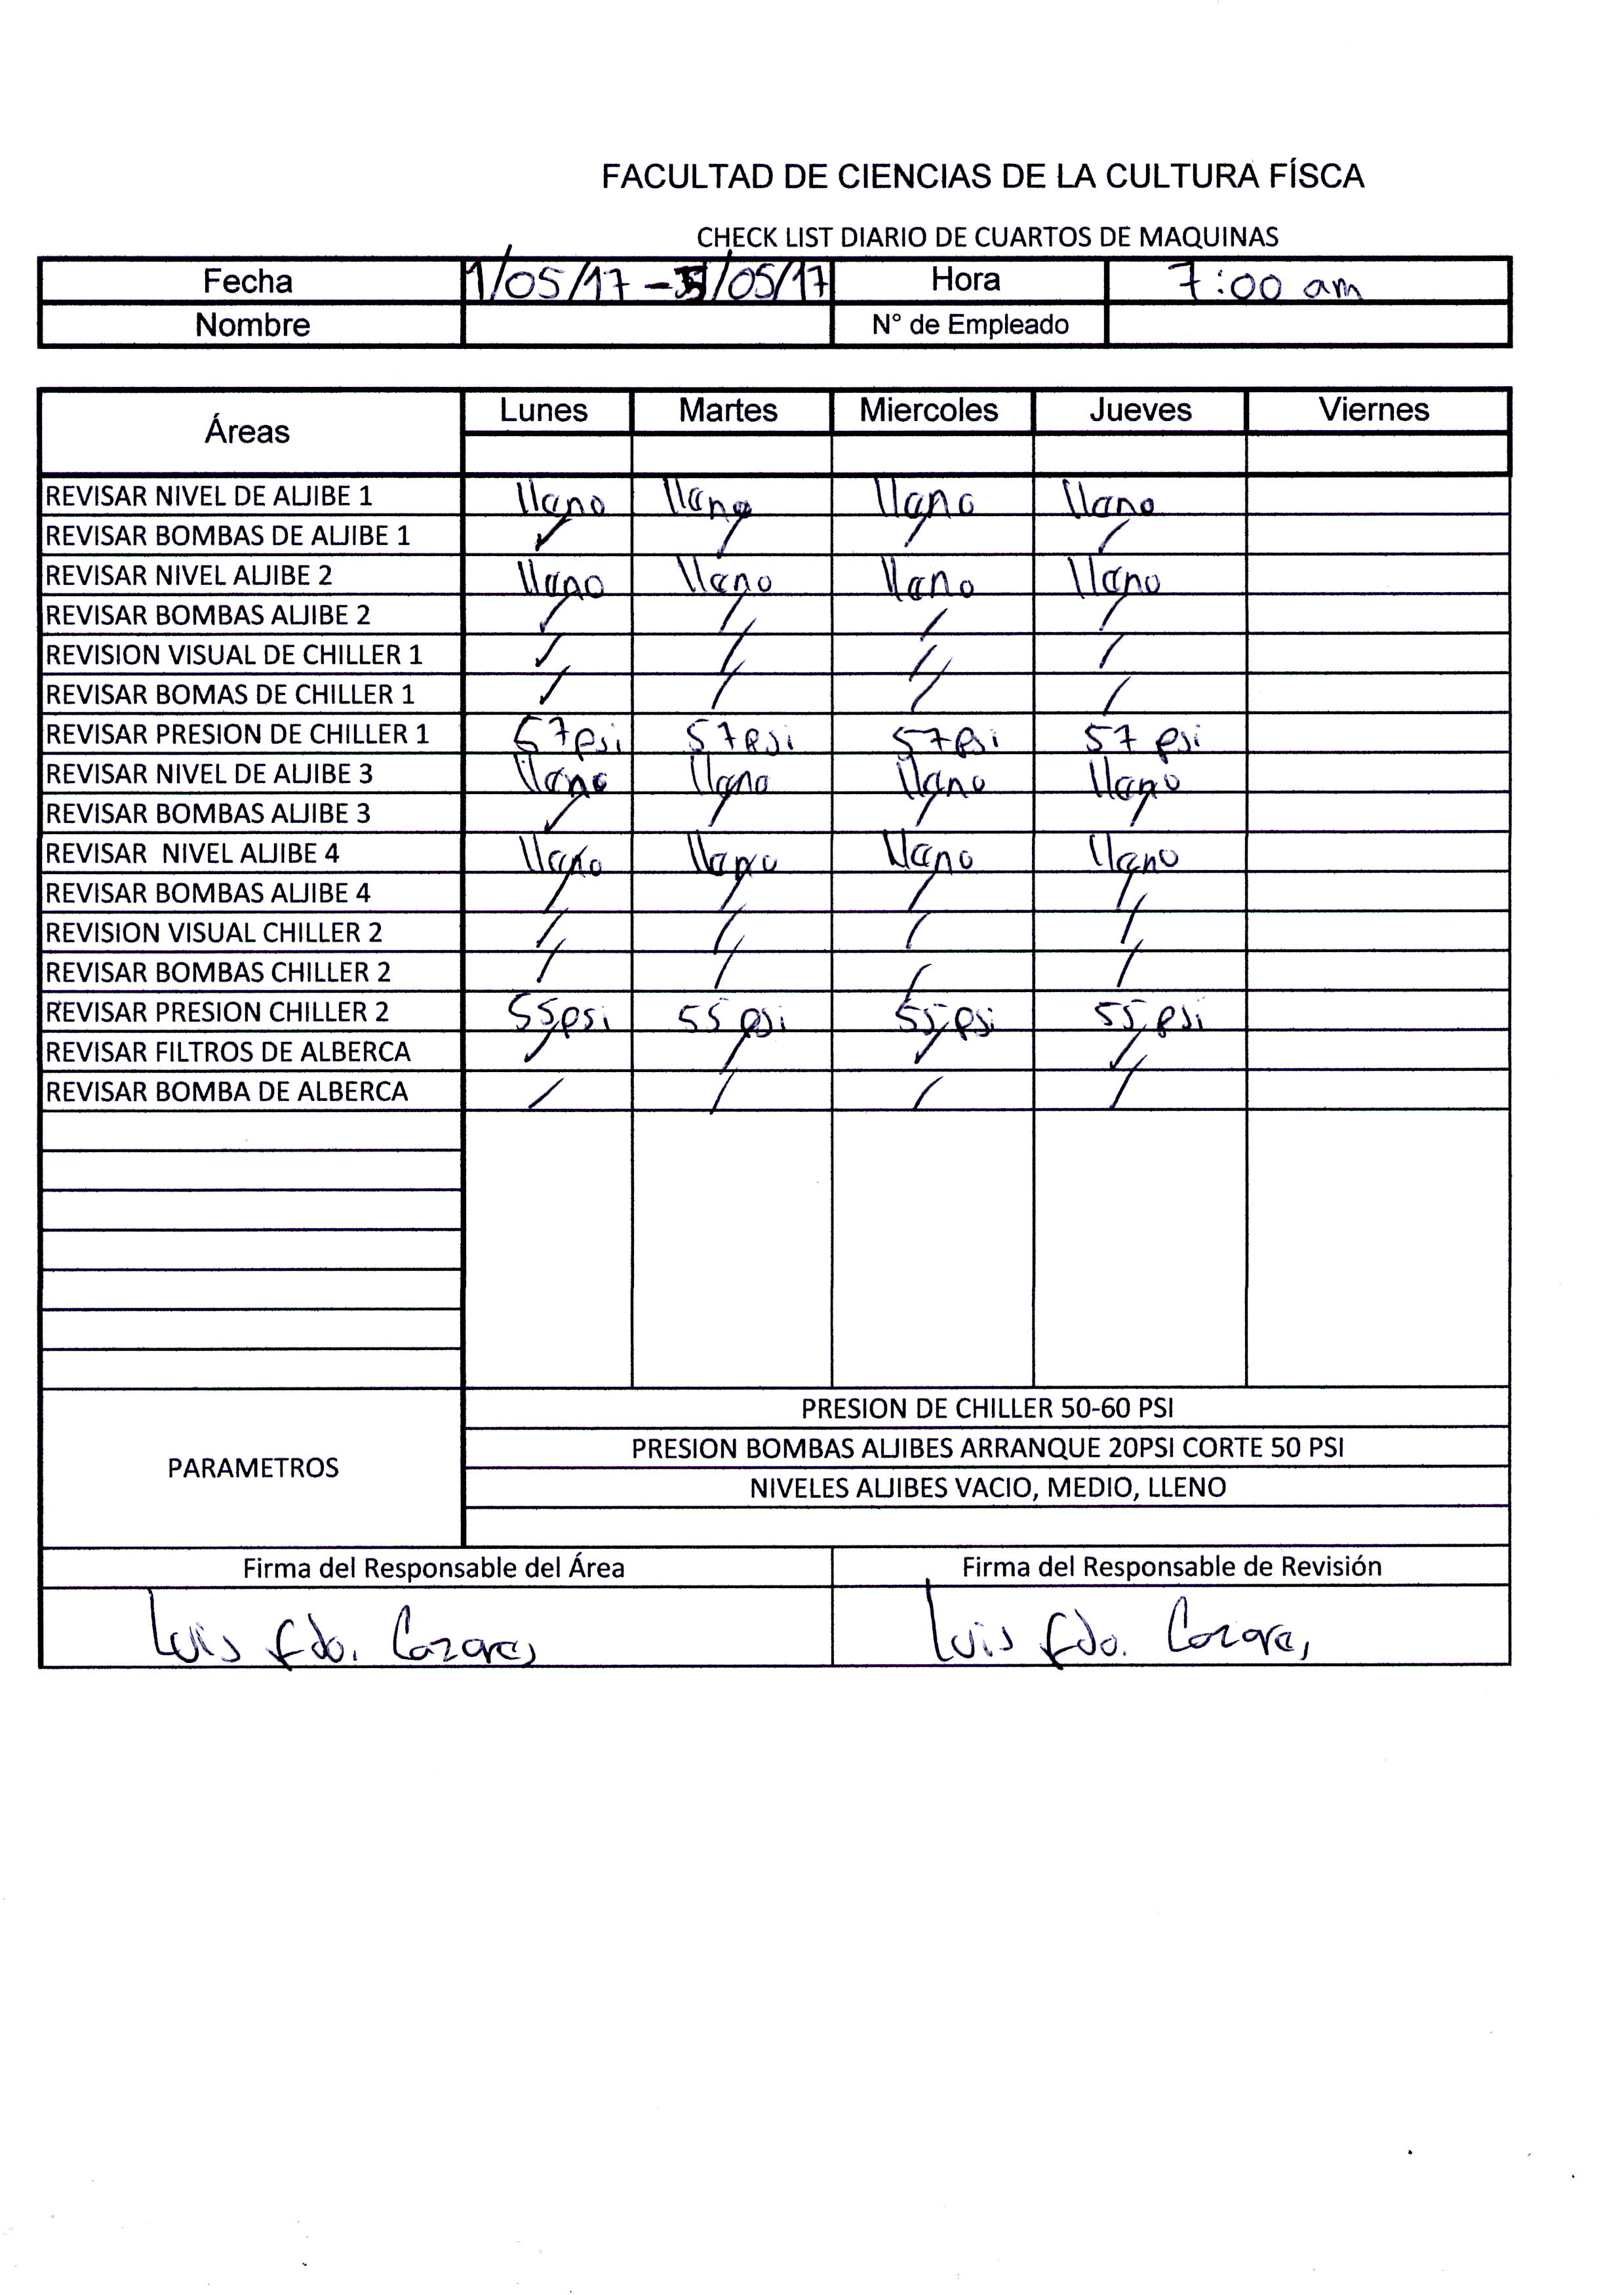 FACULTAD DE CIENCIAS DE LA CULTURA FÍSCA
CHECK LIST DIARIO DE CUARTOS DE MAQUINAS
Fecha 1/05/17 - 5/05/17 Hora 7:00 am
Nombre N° de Empleado
Áreas Lunes Martes Miercoles Jueves Viernes
REVISAR NIVEL DE ALJIBE 1 lleno lleno lleno lleno
REVISAR BOMBAS DE ALJIBE 1 ✓ / / /
REVISAR NIVEL ALJIBE 2 lleno lleno lleno lleno
REVISAR BOMBAS ALJIBE 2 ✓ / / /
REVISION VISUAL DE CHILLER 1 ✓ / / /
REVISAR BOMAS DE CHILLER 1 ✓ / / /
REVISAR PRESION DE CHILLER 1 57 psi 57 psi 57 psi 57 psi
REVISAR NIVEL DE ALJIBE 3 lleno lleno lleno lleno
REVISAR BOMBAS ALJIBE 3 ✓ / / /
REVISAR NIVEL ALJIBE 4 lleno lleno lleno lleno
REVISAR BOMBAS ALJIBE 4 / / / /
REVISION VISUAL CHILLER 2 / / / /
REVISAR BOMBAS CHILLER 2 / / / /
REVISAR PRESION CHILLER 2 55 psi 55 psi 55 psi 55 psi
REVISAR FILTROS DE ALBERCA ✓ / ✓ ✓
REVISAR BOMBA DE ALBERCA / / / /
PRESION DE CHILLER 50-60 PSI
PRESION BOMBAS ALJIBES ARRANQUE 20PSI CORTE 50 PSI
PARAMETROS
NIVELES ALJIBES VACIO, MEDIO, LLENO
Firma del Responsable del Área Firma del Responsable de Revisión
Luis Fdo. Cazares Luis Fdo. Cazares